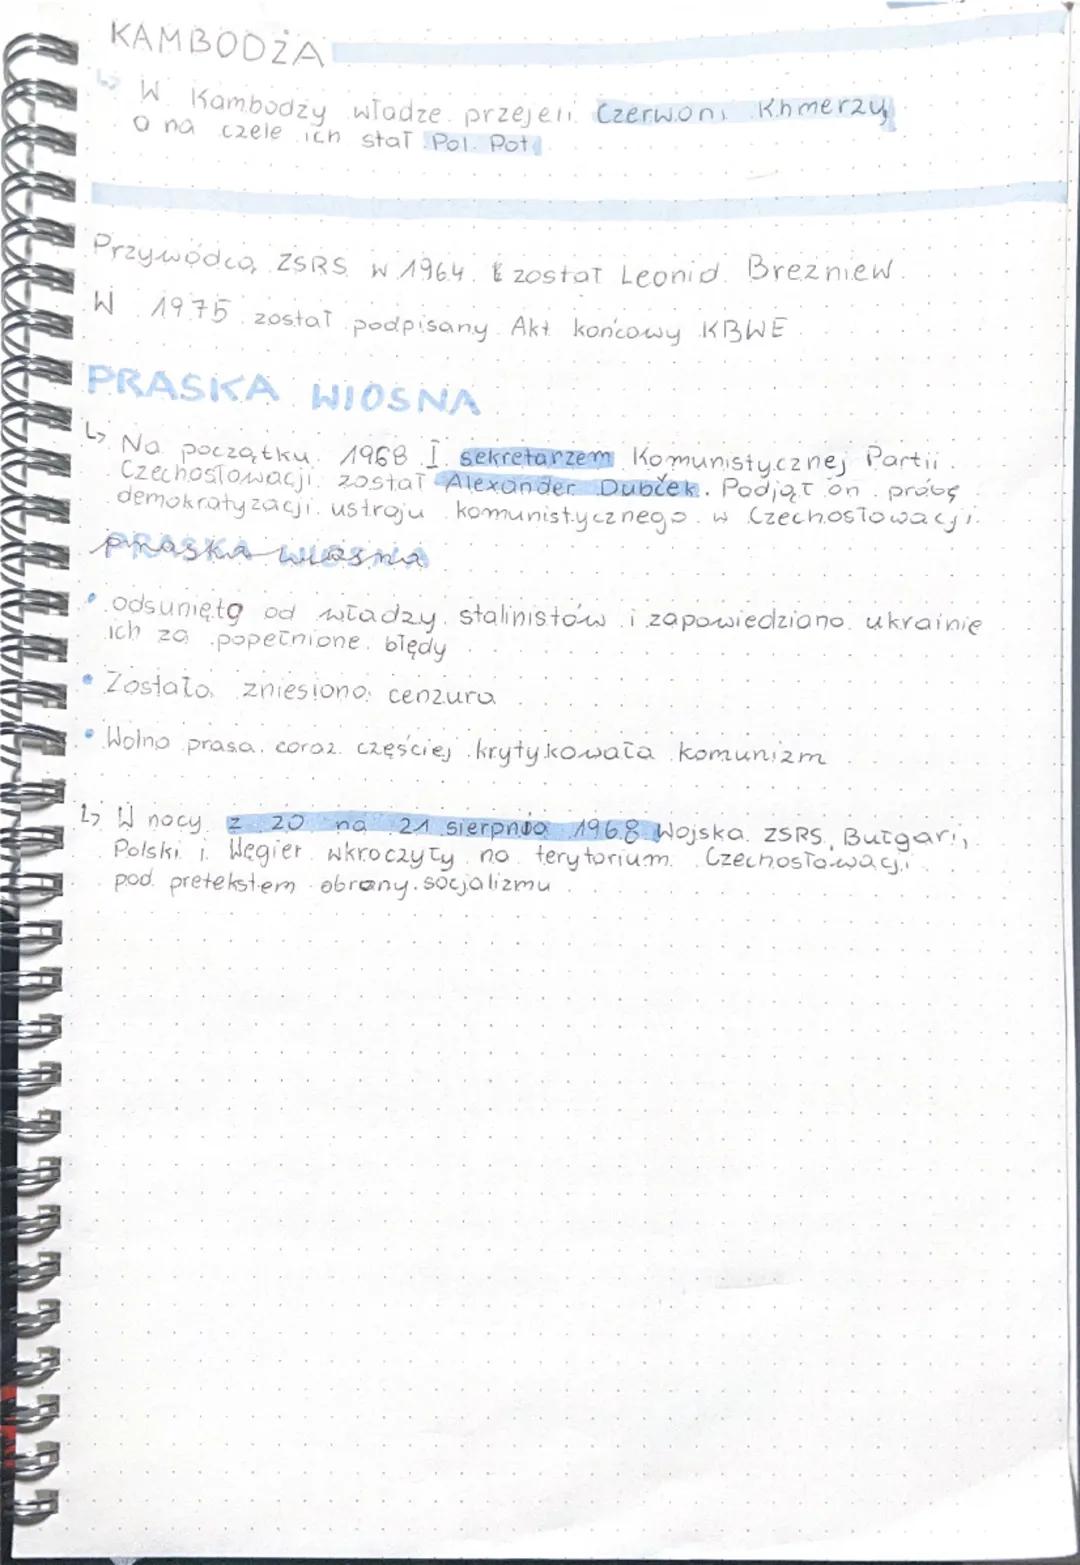 KAMBODŻA
↳ W Kambodży władze przejeli Czerwoni Khmerzy,
a na czele ich stał Pol Pot
Przywódcą ZSRS w 1964 został Leonid Breżniew.
W 1975 został podpisany Akt końcowy KBWE
PRASKA WIOSNA
↳ Na początku 1968 I sekretarzem Komunistycznej Partii
Czechosłowacji został Alexander Dubček. Podjął on próbę
demokratyzacji ustroju komunistycznego w Czechosłowacji.
praska wiosna
• odsunięto od władzy stalinistów i zapowiedziano ukrainie
ich za popełnione błędy
• Zostało zniesiona cenzura
• Wolna prasa coraz częściej krytykowała komunizm
↳ W nocy z 20 na 21 sierpnia 1968 Wojska ZSRS, Bułgarii,
Polski i Węgier wkroczyły na terytorium Czechosłowacji
pod pretekstem obrony socjalizmu